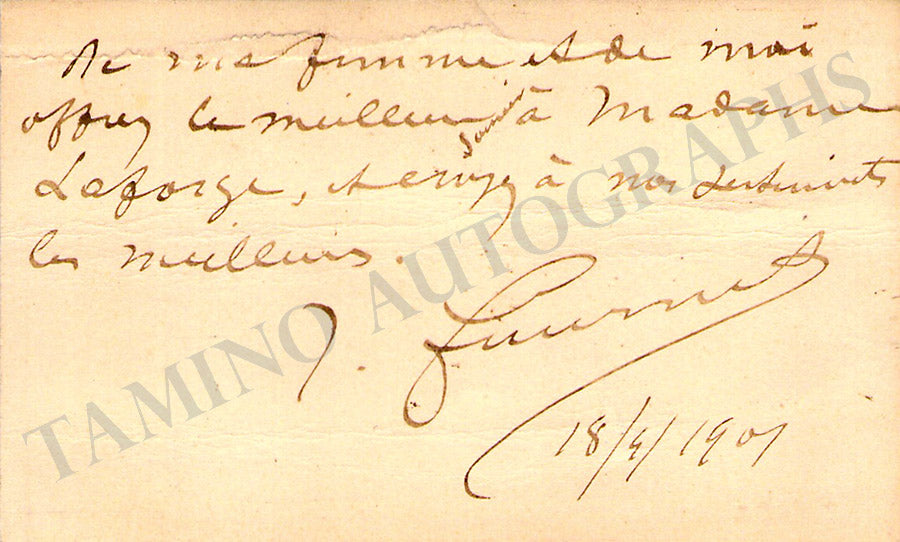 De ma femme et de moi
offrez le meilleur souvenir à Madame
Laforge, et croyez à nos sentiments
les meilleurs.
J. Fournets
18/4/1901
TAMINO AUTOGRAPHS